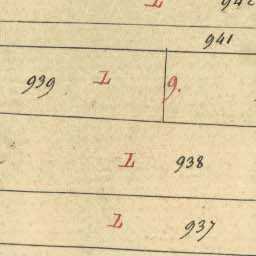 L
941
939 L 9.
L 938
L 937